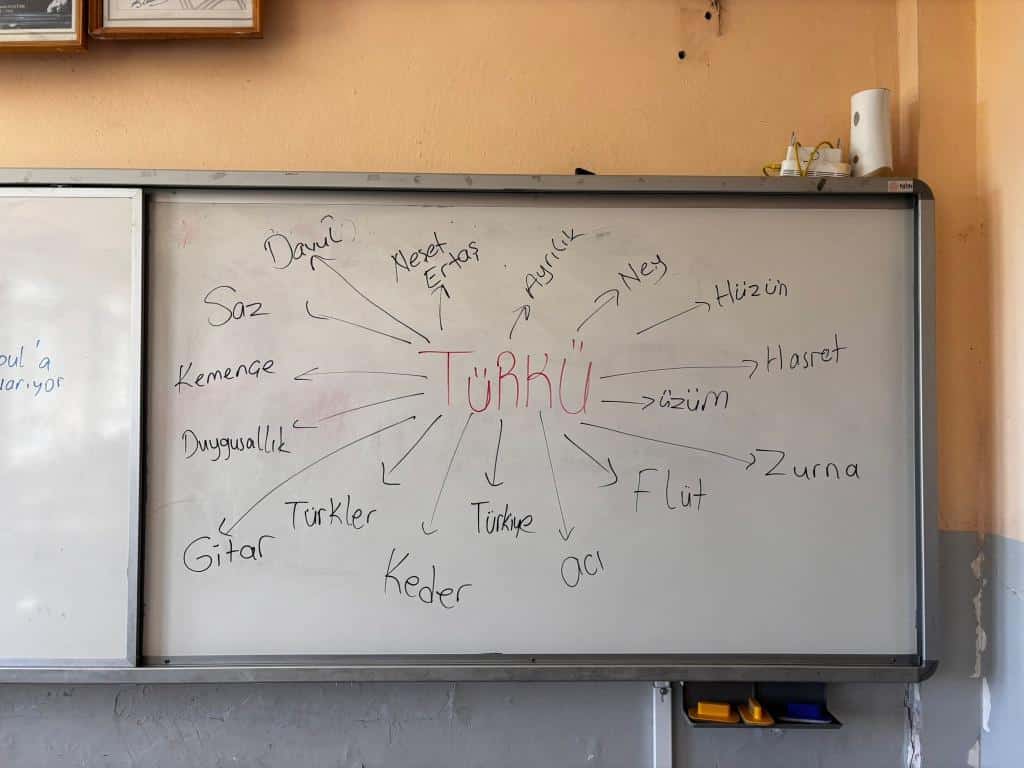 Davul
Neşet
Ertaş
Ayrılık
Ney
Hüzün
Saz
Hasret
Kemençe
TÜRKÜ
üzüm
Duygusallık
Zurna
Flüt
Türkler
Türkiye
Gitar
Keder
acı